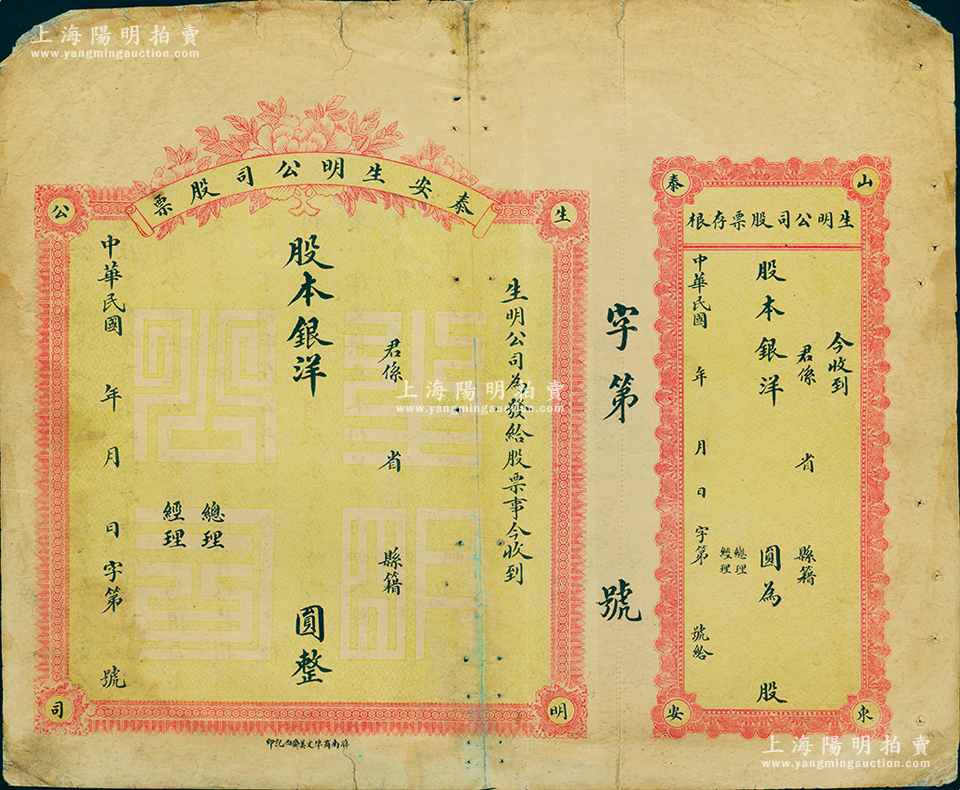 上海陽明拍賣
www.yangmingauction.com
上海陽明拍賣
www.yangmingauction.com
山東
泰安
生明公司股票存根
今收到
君係 省 縣籍
股本銀洋 圓為 股
總理
經理
中華民國 年 月 日 字第 號給
字第 號
泰安生明公司股票
生明
公司
生明公司為發給股票事今收到
君係 省 縣籍
股本銀洋 圓整
總理
經理
中華民國 年 月 日 字第 號
生明公司
上海陽明拍賣
www.yangmingauction.com
上海陽明拍賣
www.yangmingauction.com